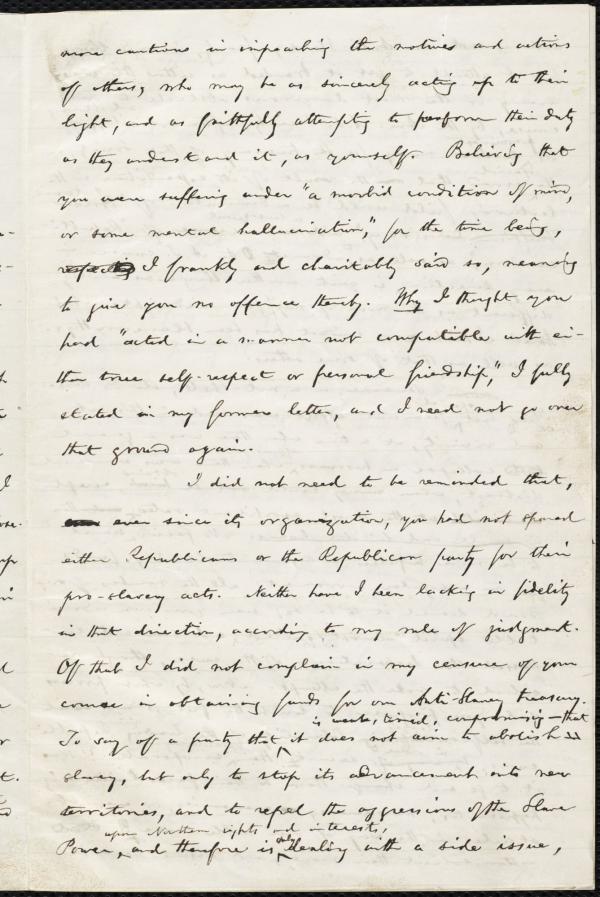 more cautious in impeaching the motives and actions
of others, who may be as sincerely acting up to their
light, and as faithfully attempting to perform their duty
as they understand it, as yourself. Believing that
you were suffering under "a morbid condition of mind,
or some mental hallucination," for the time being,
I frankly and charitably said so, meaning
to give you no offence thereby. Why I thought you
had "acted in a manner not compatible with ei-
ther true self-respect or personal friendship," I fully
stated in my former letter, and I need not go over
that ground again.
I did not need to be reminded that,
ever since its organization, you had not spared
either Republicans or the Republican party for their
pro-slavery acts. Neither have I been lacking in fidelity
in that direction, according to my rule of judgment.
Of that I did not complain in my censure of your
course in obtaining funds for our Anti-Slavery treasury.
is weak, timid, compromising—that
To say of a party that it does not aim to abolish
slavery, but only to stop its advancement into new
territories, and to repel the aggressions of the Slave
upon Northern rights and interests,
Power, and therefore is only dealing with a side issue,